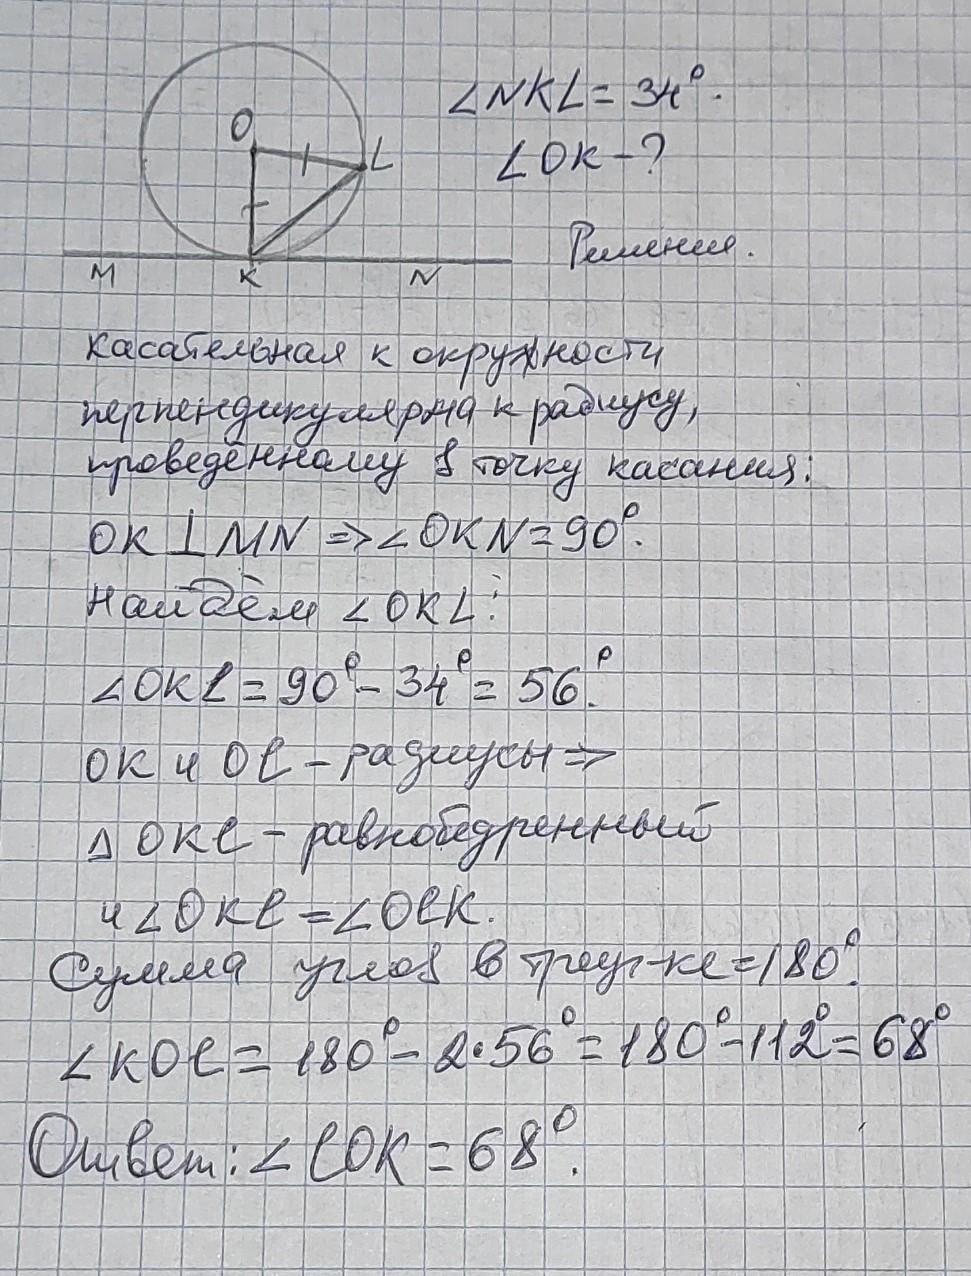 ∠NKL = 34°.
∠OK - ?
O
L
M
K
N
Решение.
Касательная к окружности
перпендикулярна к радиусу,
проведённому в точку касания:
OK ⊥ MN => ∠OKN = 90°.
Найдём ∠OKL:
∠OKℓ = 90° - 34° = 56°.
OK и Oℓ - радиусы =>
△ OKℓ - равнобедренный
и ∠OKℓ = ∠OℓK.
Сумма углов в треуг-ке = 180°.
∠KOℓ = 180° - 2·56° = 180° - 112° = 68°
Ответ: ∠ℓOK = 68°.